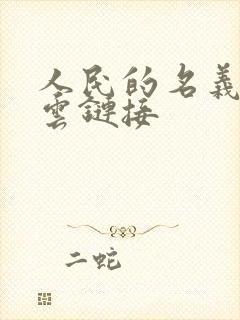 人民的名義
雲鏈接
二蛇